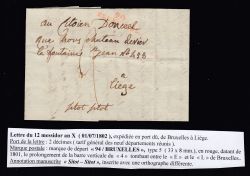 au Citoien Donckel
rue
la fontaine
à
Liege
sitot sitot
Lettre du 12 messidor an X ( 01/07/1802 ), expédiée en port dû, de Bruxelles à Liège.
Port de la lettre : 2 décimes ( tarif général des neuf départements réunis ).
Marque postale : marque de départ « 94 / BRUXELLES », type 5 ( 33 x 8 mm.), en rouge, datant de
1801, le prolongement de la barre verticale du « 4 » tombant entre le « E » et le « L » de Bruxelles.
Annotation manuscrite « Sitot – Sitot », inscrite avec une orthographe différente.